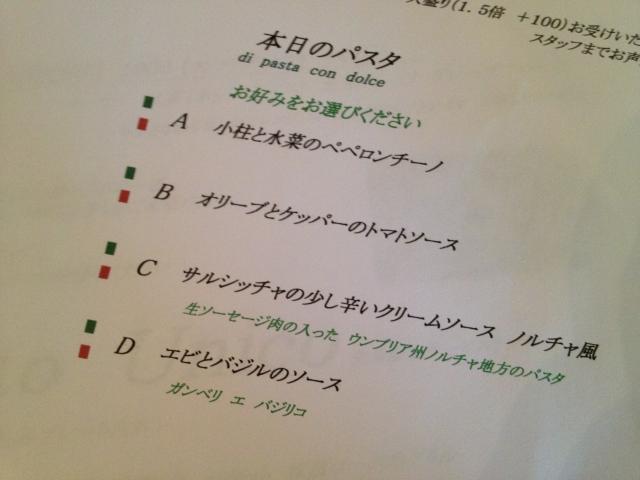 大盛り(1.5倍 +100)お受けいた
スタッフまでお声
本日のパスタ
di pasta con dolce
お好みをお選びください
A 小柱と水菜のペペロンチーノ
B オリーブとケッパーのトマトソース
C サルシッチャの少し辛いクリームソース ノルチャ風
生ソーセージ肉の入った ウンブリア州ノルチャ地方のパスタ
D エビとバジルのソース
ガンベリ エ バジリコ